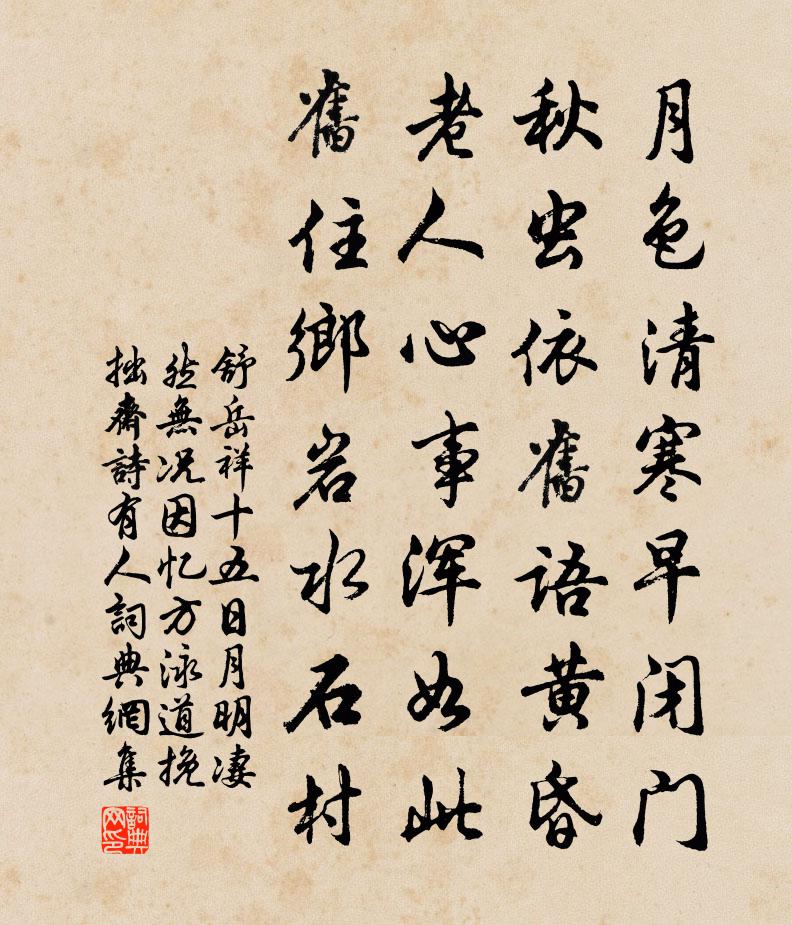 月色清寒早闭门
秋虫依舊語黄昏
老人心事浑如此
舊住鄉岩水石村
舒岳祥十五日月明凄
然無况因忆方泳道挽
拙齋詩有人詞典網集
詞典网印